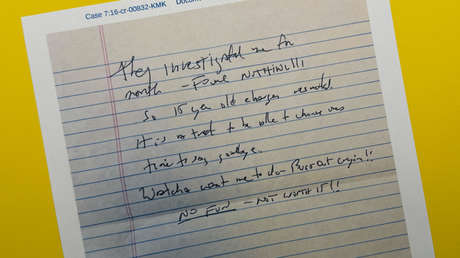 Case 7:16-cr-00832-KMK Docume
They investigated me for
month — FOUND NOTHING!!!
So 15 year old charges resulted.
It is a treat to be able to choose
time to say goodbye.
want me to do Burst out cryin!!
NO FUN — NOT WORTH IT!!